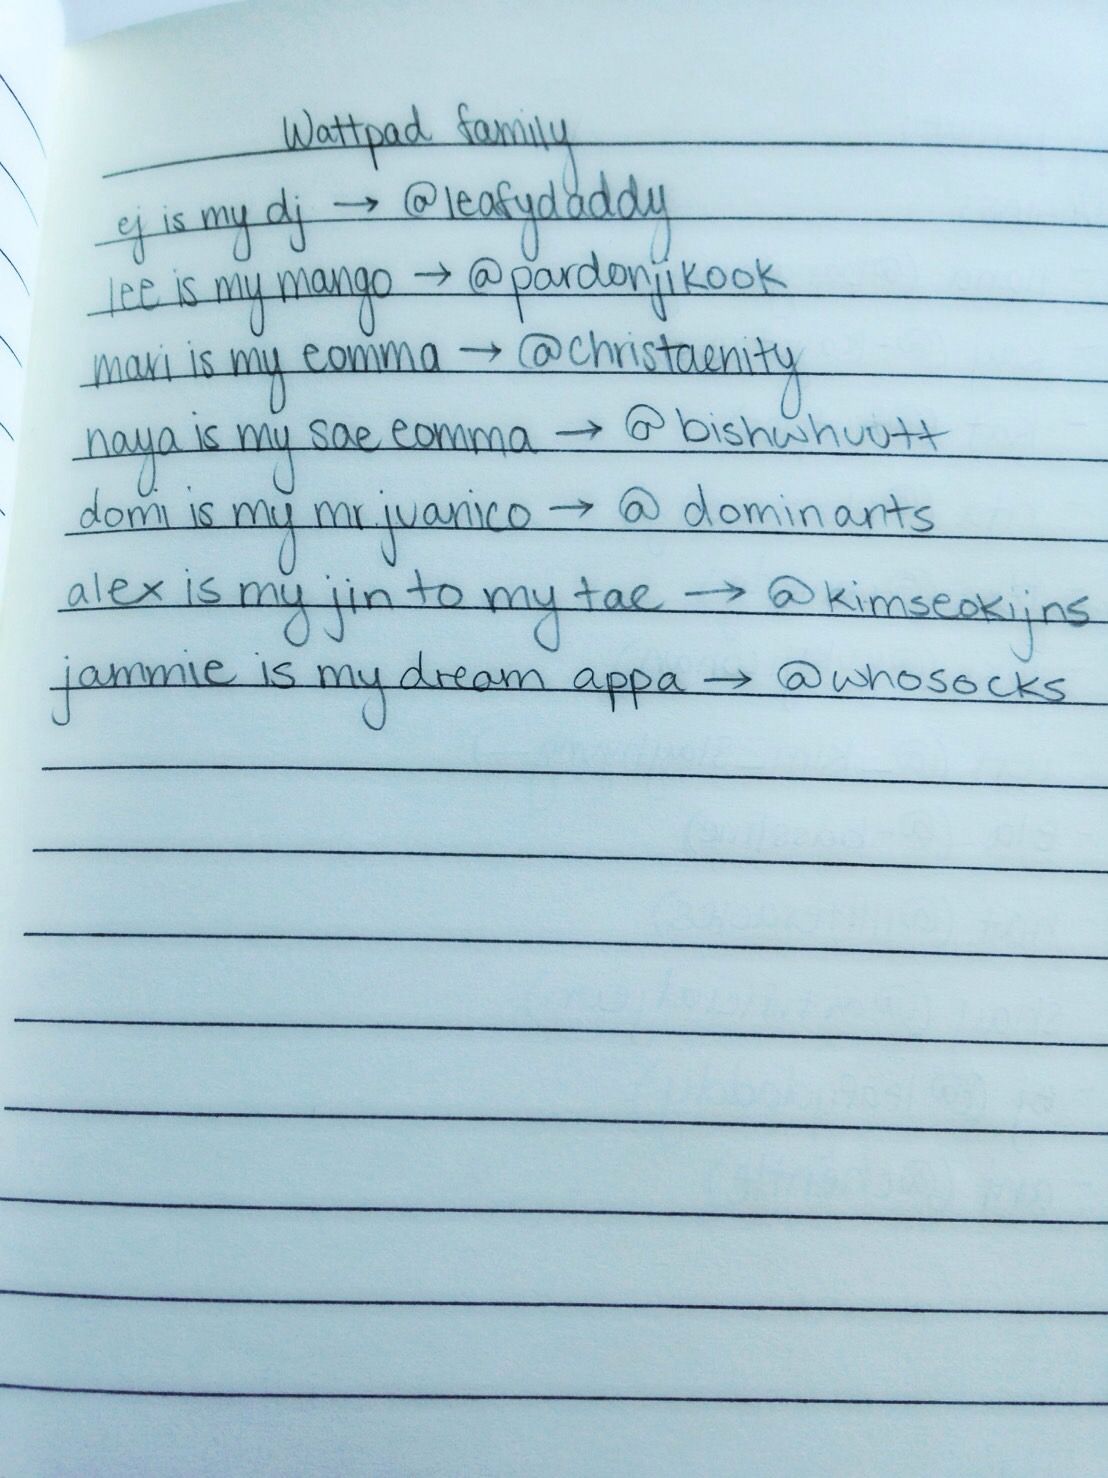 Wattpad family
ej is my dj → @leafydaddy
lee is my mango → @pardonjikook
mari is my eomma → @christaenity
naya is my sae eomma → @bishwhuutt
domi is my mr.juanico → @ dominants
alex is my jin to my tae → @kimseokijns
jammie is my dream appa → @whosocks